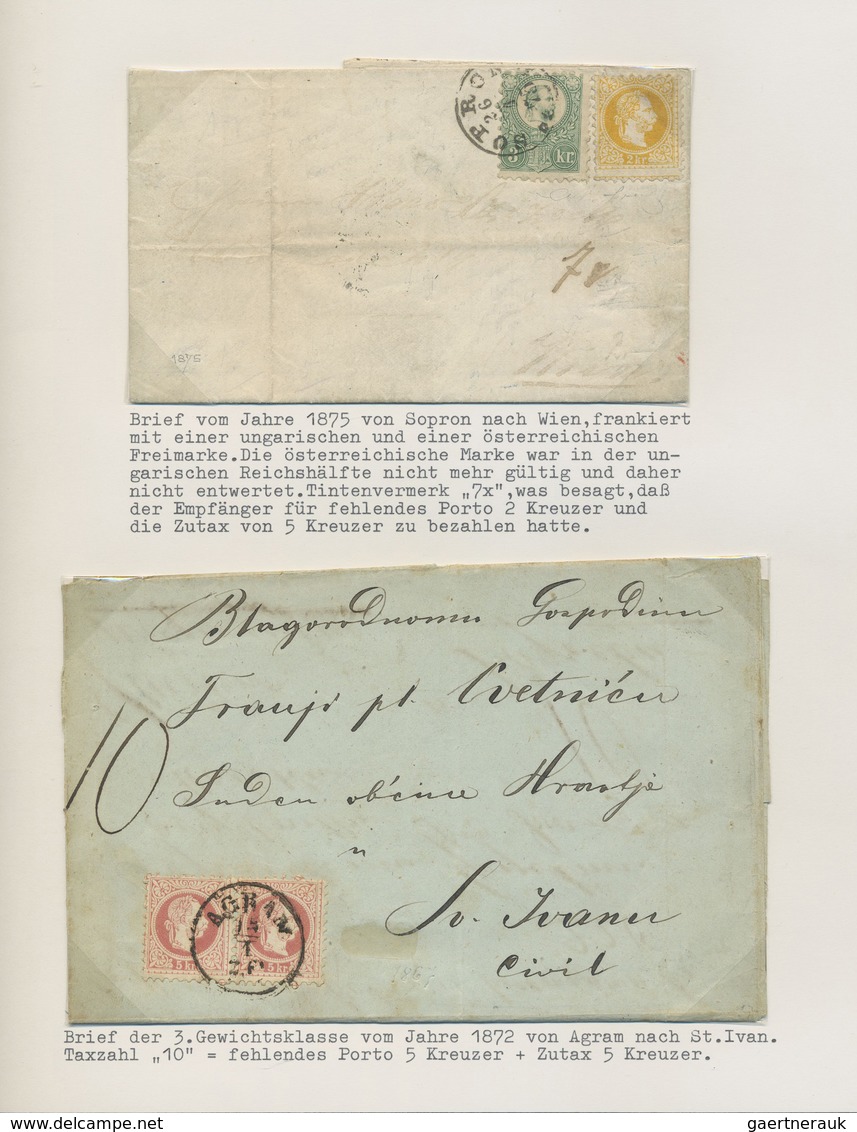 SOPRON
26
3 kr.
2 kr.
7x
1875
Brief vom Jahre 1875 von Sopron nach Wien,frankiert
mit einer ungarischen und einer österreichischen
Freimarke.Die österreichische Marke war in der un-
garischen Reichshälfte nicht mehr gültig und daher
nicht entwertet.Tintenvermerk „7x",was besagt,daß
der Empfänger für fehlendes Porto 2 Kreuzer und
die Zutax von 5 Kreuzer zu bezahlen hatte.
Blagorodnomu Gospodinu
Franji pl. Cvetniću
10
Sudcu obćine Hrastje
u
Sv. Ivanu
Civil
AGRAM
15
1
5 kr. 5 kr.
Brief der 3.Gewichtsklasse vom Jahre 1872 von Agram nach St.Ivan.
Taxzahl „10" = fehlendes Porto 5 Kreuzer + Zutax 5 Kreuzer.
www.delcampe.net
gaertnerauk